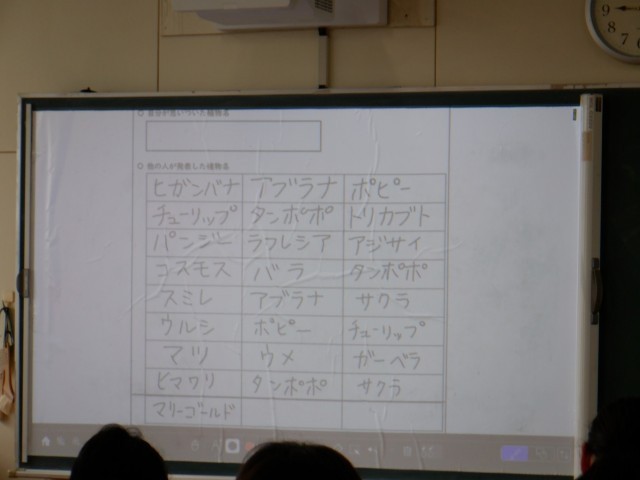 ○ 自分が思いついた植物名
○ 他の人が発表した植物名
ヒガンバナ アブラナ ポピー
チューリップ タンポポ トリカブト
パンジー ラフレシア アジサイ
コスモス バラ タンポポ
スミレ アブラナ サクラ
ウルシ ポピー チューリップ
マツ ウメ ガーベラ
ヒマワリ タンポポ サクラ
マリーゴールド
9
8
7